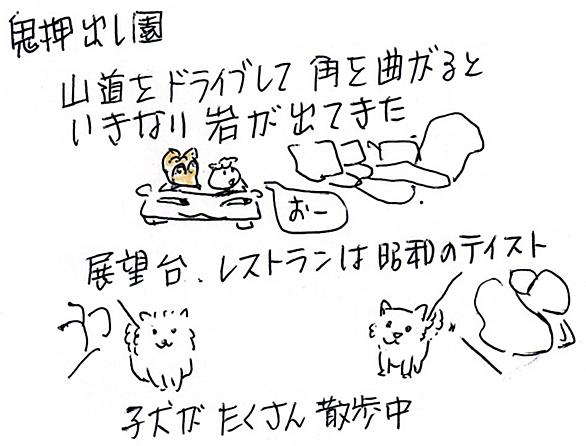 鬼押出し園
山道をドライブして 角を曲がると
いきなり 岩が出てきた
おー
展望台、レストランは昭和のテイスト
子犬が たくさん 散歩中